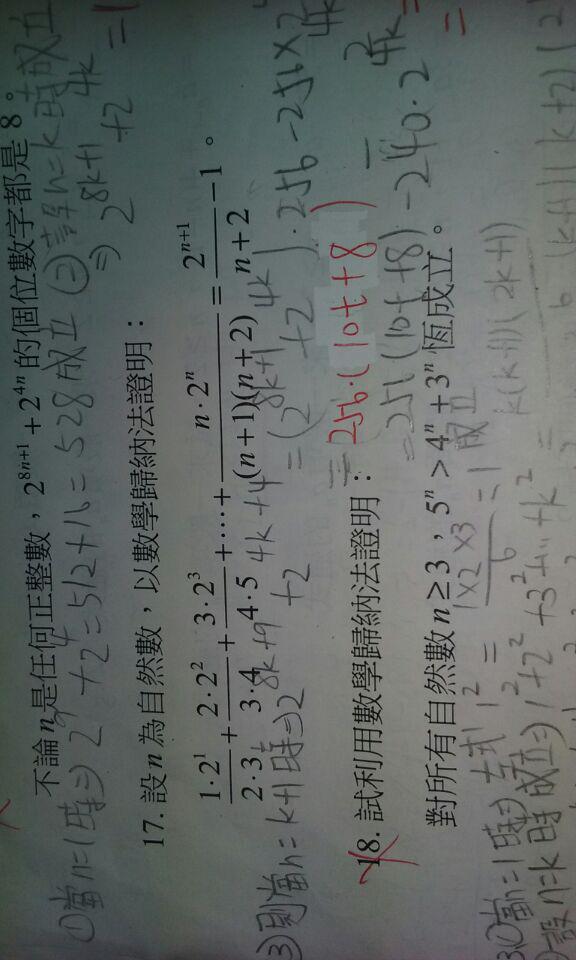 不論n是任何正整數，2^{8n+1} + 2^{4n} 的個位數字都是 8。
①當n=1時⇒ 2^9 + 2^4 = 512+16 = 528 成立 ②若n=k時成立
⇒ 2^{8k+1} + 2^{4k}
17. 設 n 為自然數，以數學歸納法證明：
\frac{1·2^1}{2·3} + \frac{2·2^2}{3·4} + \frac{3·2^3}{4·5} + … + \frac{n·2^n}{(n+1)(n+2)} = \frac{2^{n+1}}{n+2} − 1。
③則當n=k+1時⇒ 2^{8k+9} + 2^{4k+4} = (2^{8k+1} + 2^{4k})·256 − 256×2^{4k}
= 256·(10t+8)
= 256(10t+8) − 240·2^{4k}
18. 試利用數學歸納法證明：
對所有自然數 n ≥ 3，5^n > 4^n + 3^n 恆成立。
①當n=1時⇒左式 1^2 = \frac{1×2×3}{6} = 1 成立
設n=k時成立⇒ 1^2+2^2+3^2+…+k^2 = \frac{k(k+1)(2k+1)}{6}